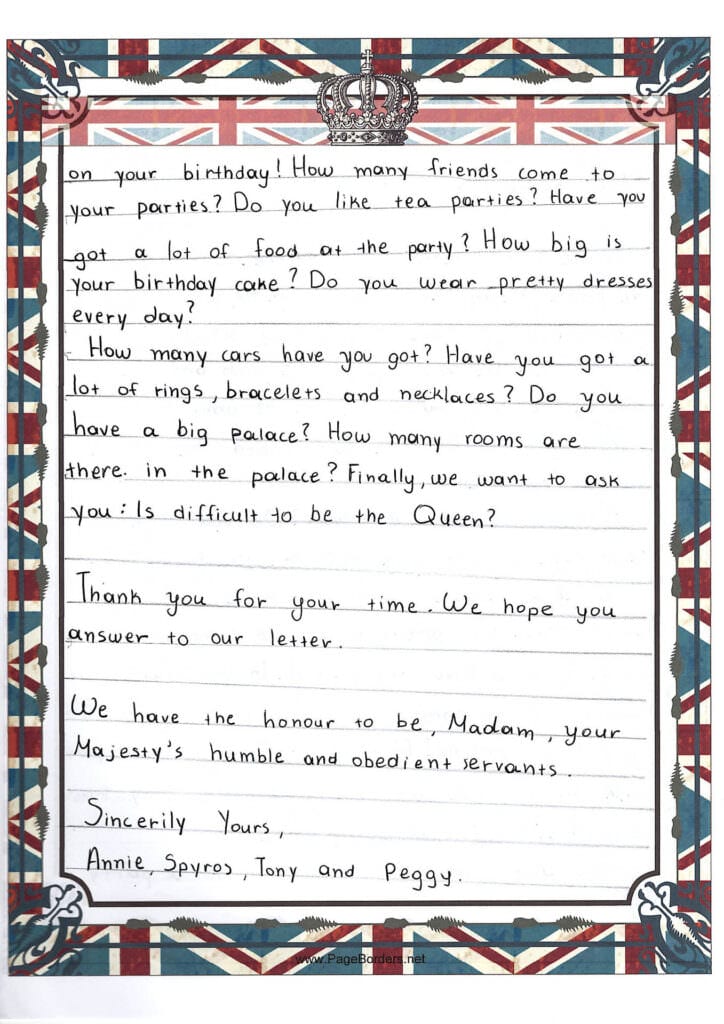 on your birthday! How many friends come to
your parties? Do you like tea parties? Have you
got a lot of food at the party? How big is
your birthday cake? Do you wear pretty dresses
every day?
How many cars have you got? Have you got a
lot of rings, bracelets and necklaces? Do you
have a big palace? How many rooms are
there. in the palace? Finally, we want to ask
you: Is difficult to be the Queen?
Thank you for your time. We hope you
answer to our letter.
We have the honour to be, Madam, your
Majesty's humble and obedient servants.
Sincerily Yours,
Annie, Spyros, Tony and Peggy.
www.PageBorders.net